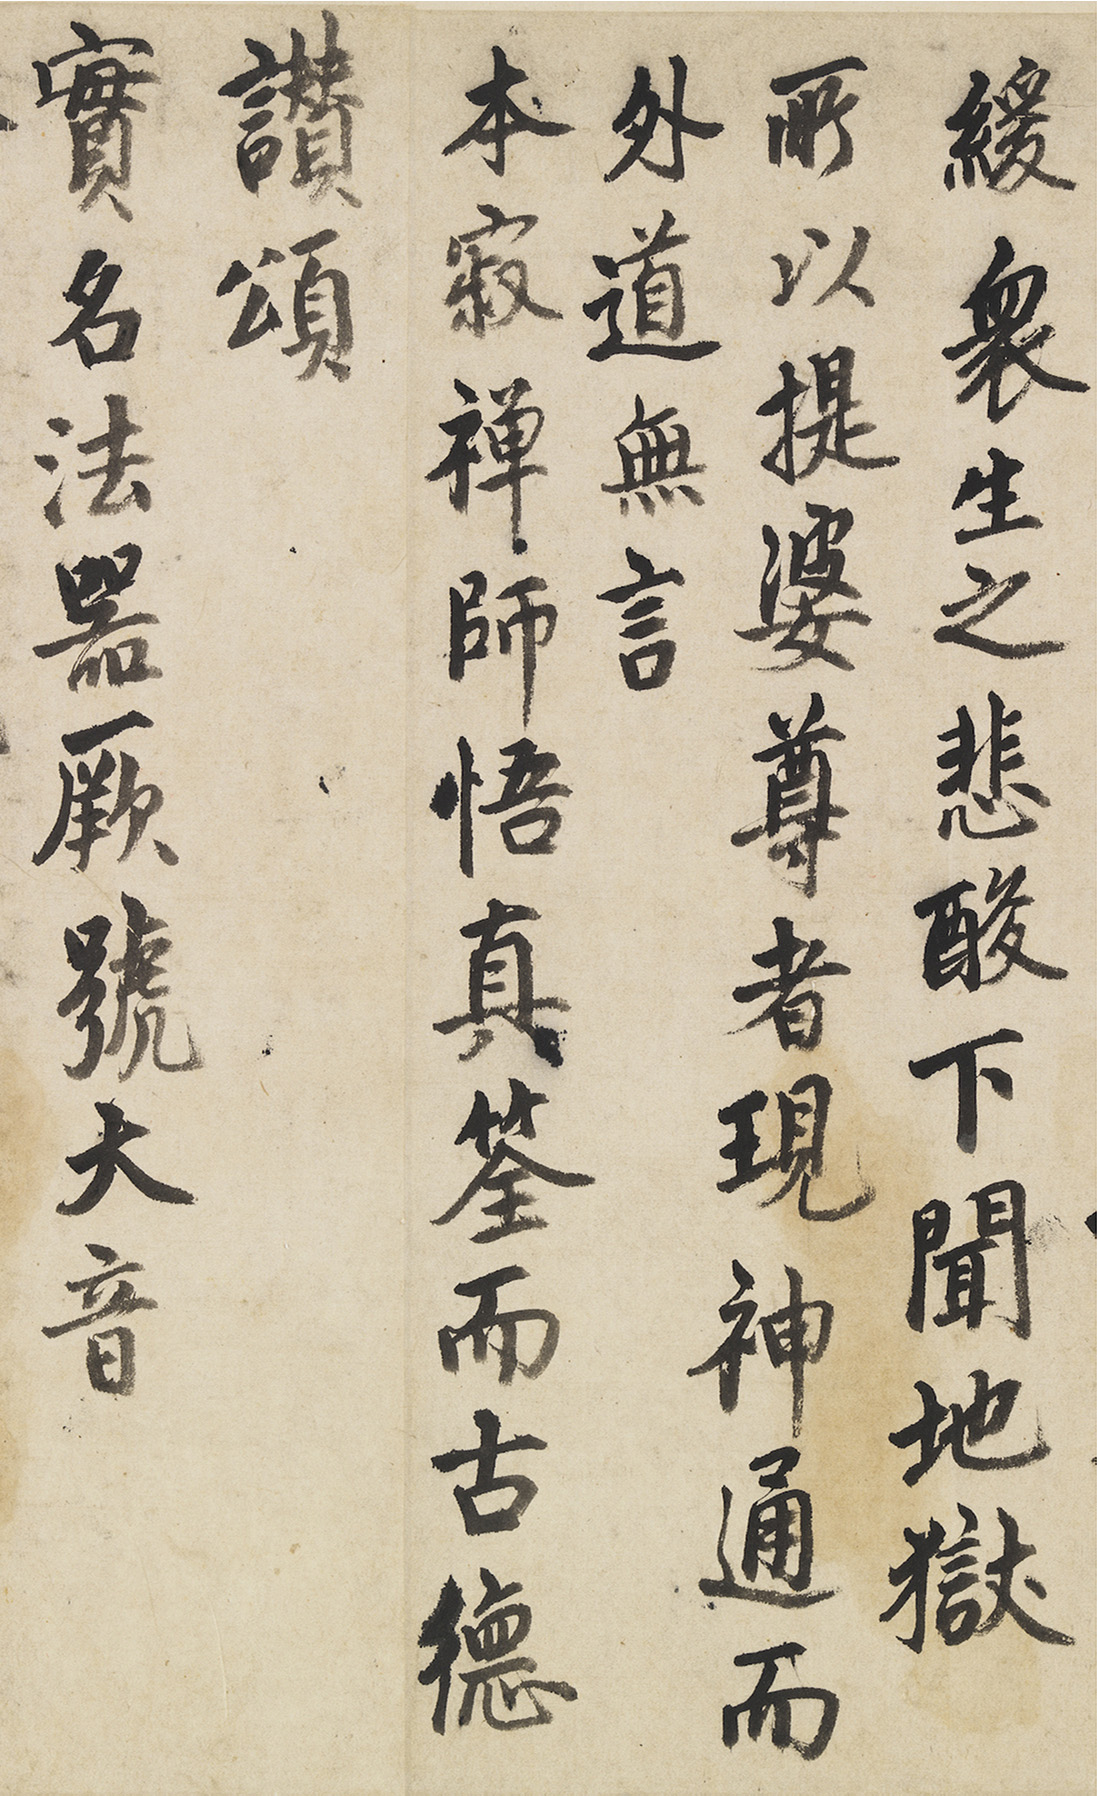 緩衆生之悲酸下聞地獄
所以提婆尊者現神通而
外道無言
本寂禅師悟真筌而古德
讃頌
實名法器厥號大音